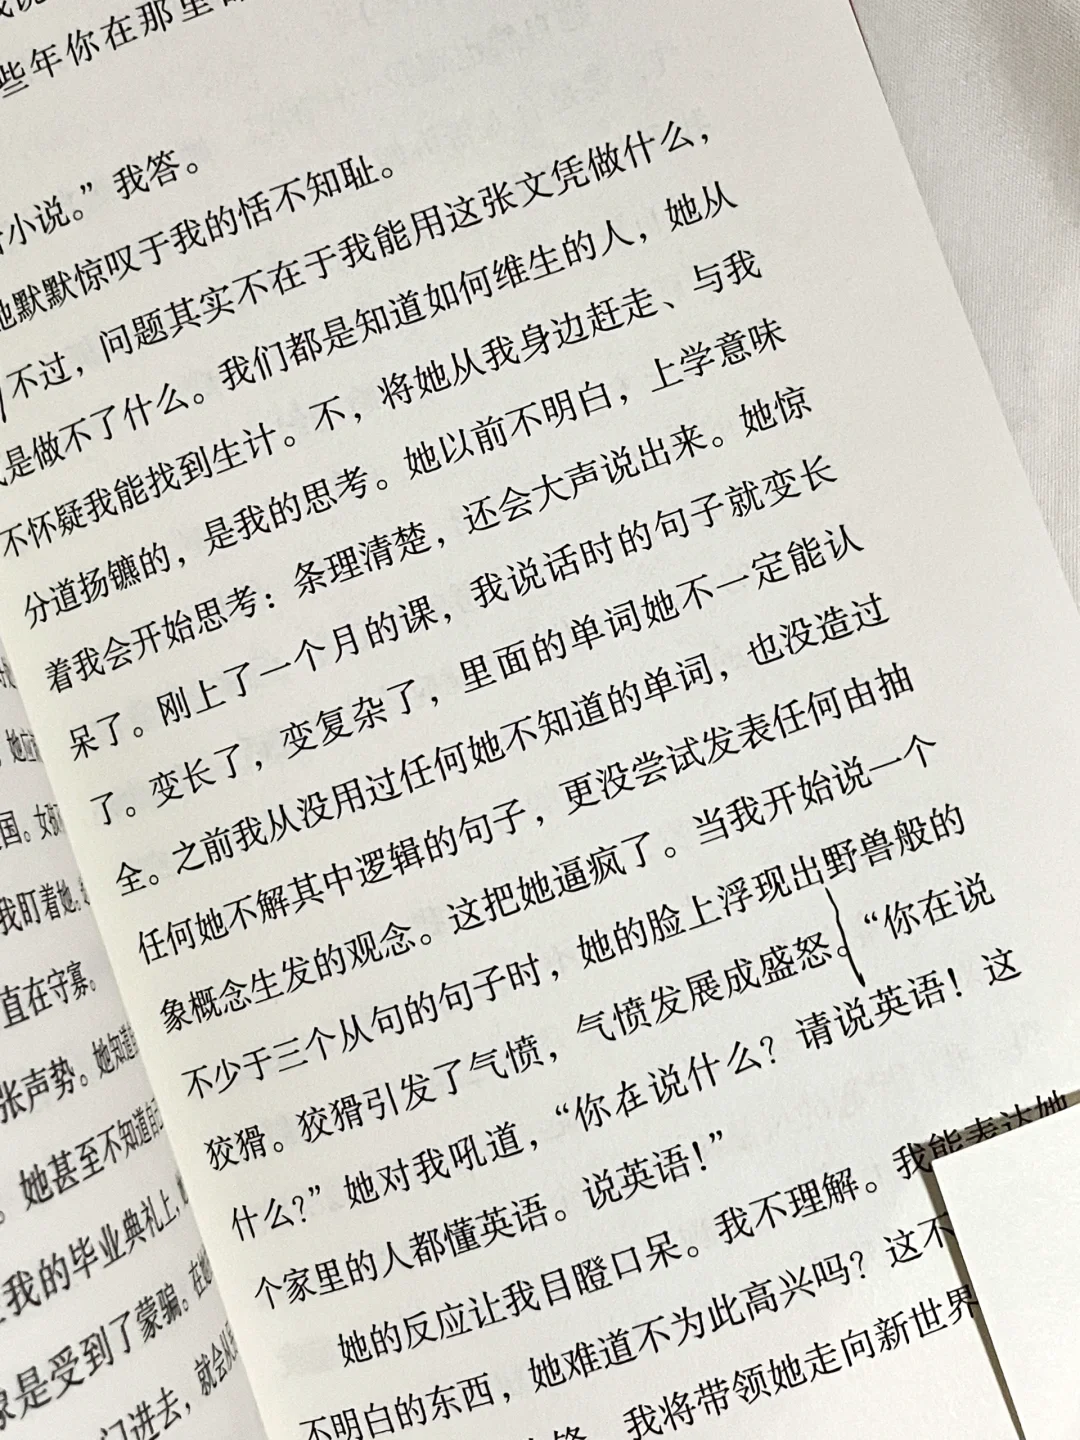 些年你在那里
小说。”我答。
她默默惊叹于我的恬不知耻。
不过，问题其实不在于我能用这张文凭做什么，
是做不了什么。我们都是知道如何维生的人，她从
不怀疑我能找到生计。不，将她从我身边赶走、与我
分道扬镳的，是我的思考。她以前不明白，上学意味
着我会开始思考：条理清楚，还会大声说出来。她惊
呆了。刚上了一个月的课，我说话时的句子就变长
了。变长了，变复杂了，里面的单词她不一定能认
全。之前我从没用过任何她不知道的单词，也没造过
任何她不解其中逻辑的句子，更没尝试发表任何由抽
象概念生发的观念。这把她逼疯了。当我开始说一个
不少于三个从句的句子时，她的脸上浮现出野兽般的
狡猾。狡猾引发了气愤，气愤发展成盛怒。“你在说
什么？”她对我吼道，“你在说什么？请说英语！这
个家里的人都懂英语。说英语！”
她的反应让我目瞪口呆。我不理解。我能表达她
不明白的东西，她难道不为此高兴吗？这不
我将带领她走向新世界
国。女孩
我盯着她，
直在守寡。
张声势。她知道
。她甚至不知道自
我的毕业典礼上，
象是受到了蒙骗。在她
门进去，就会从